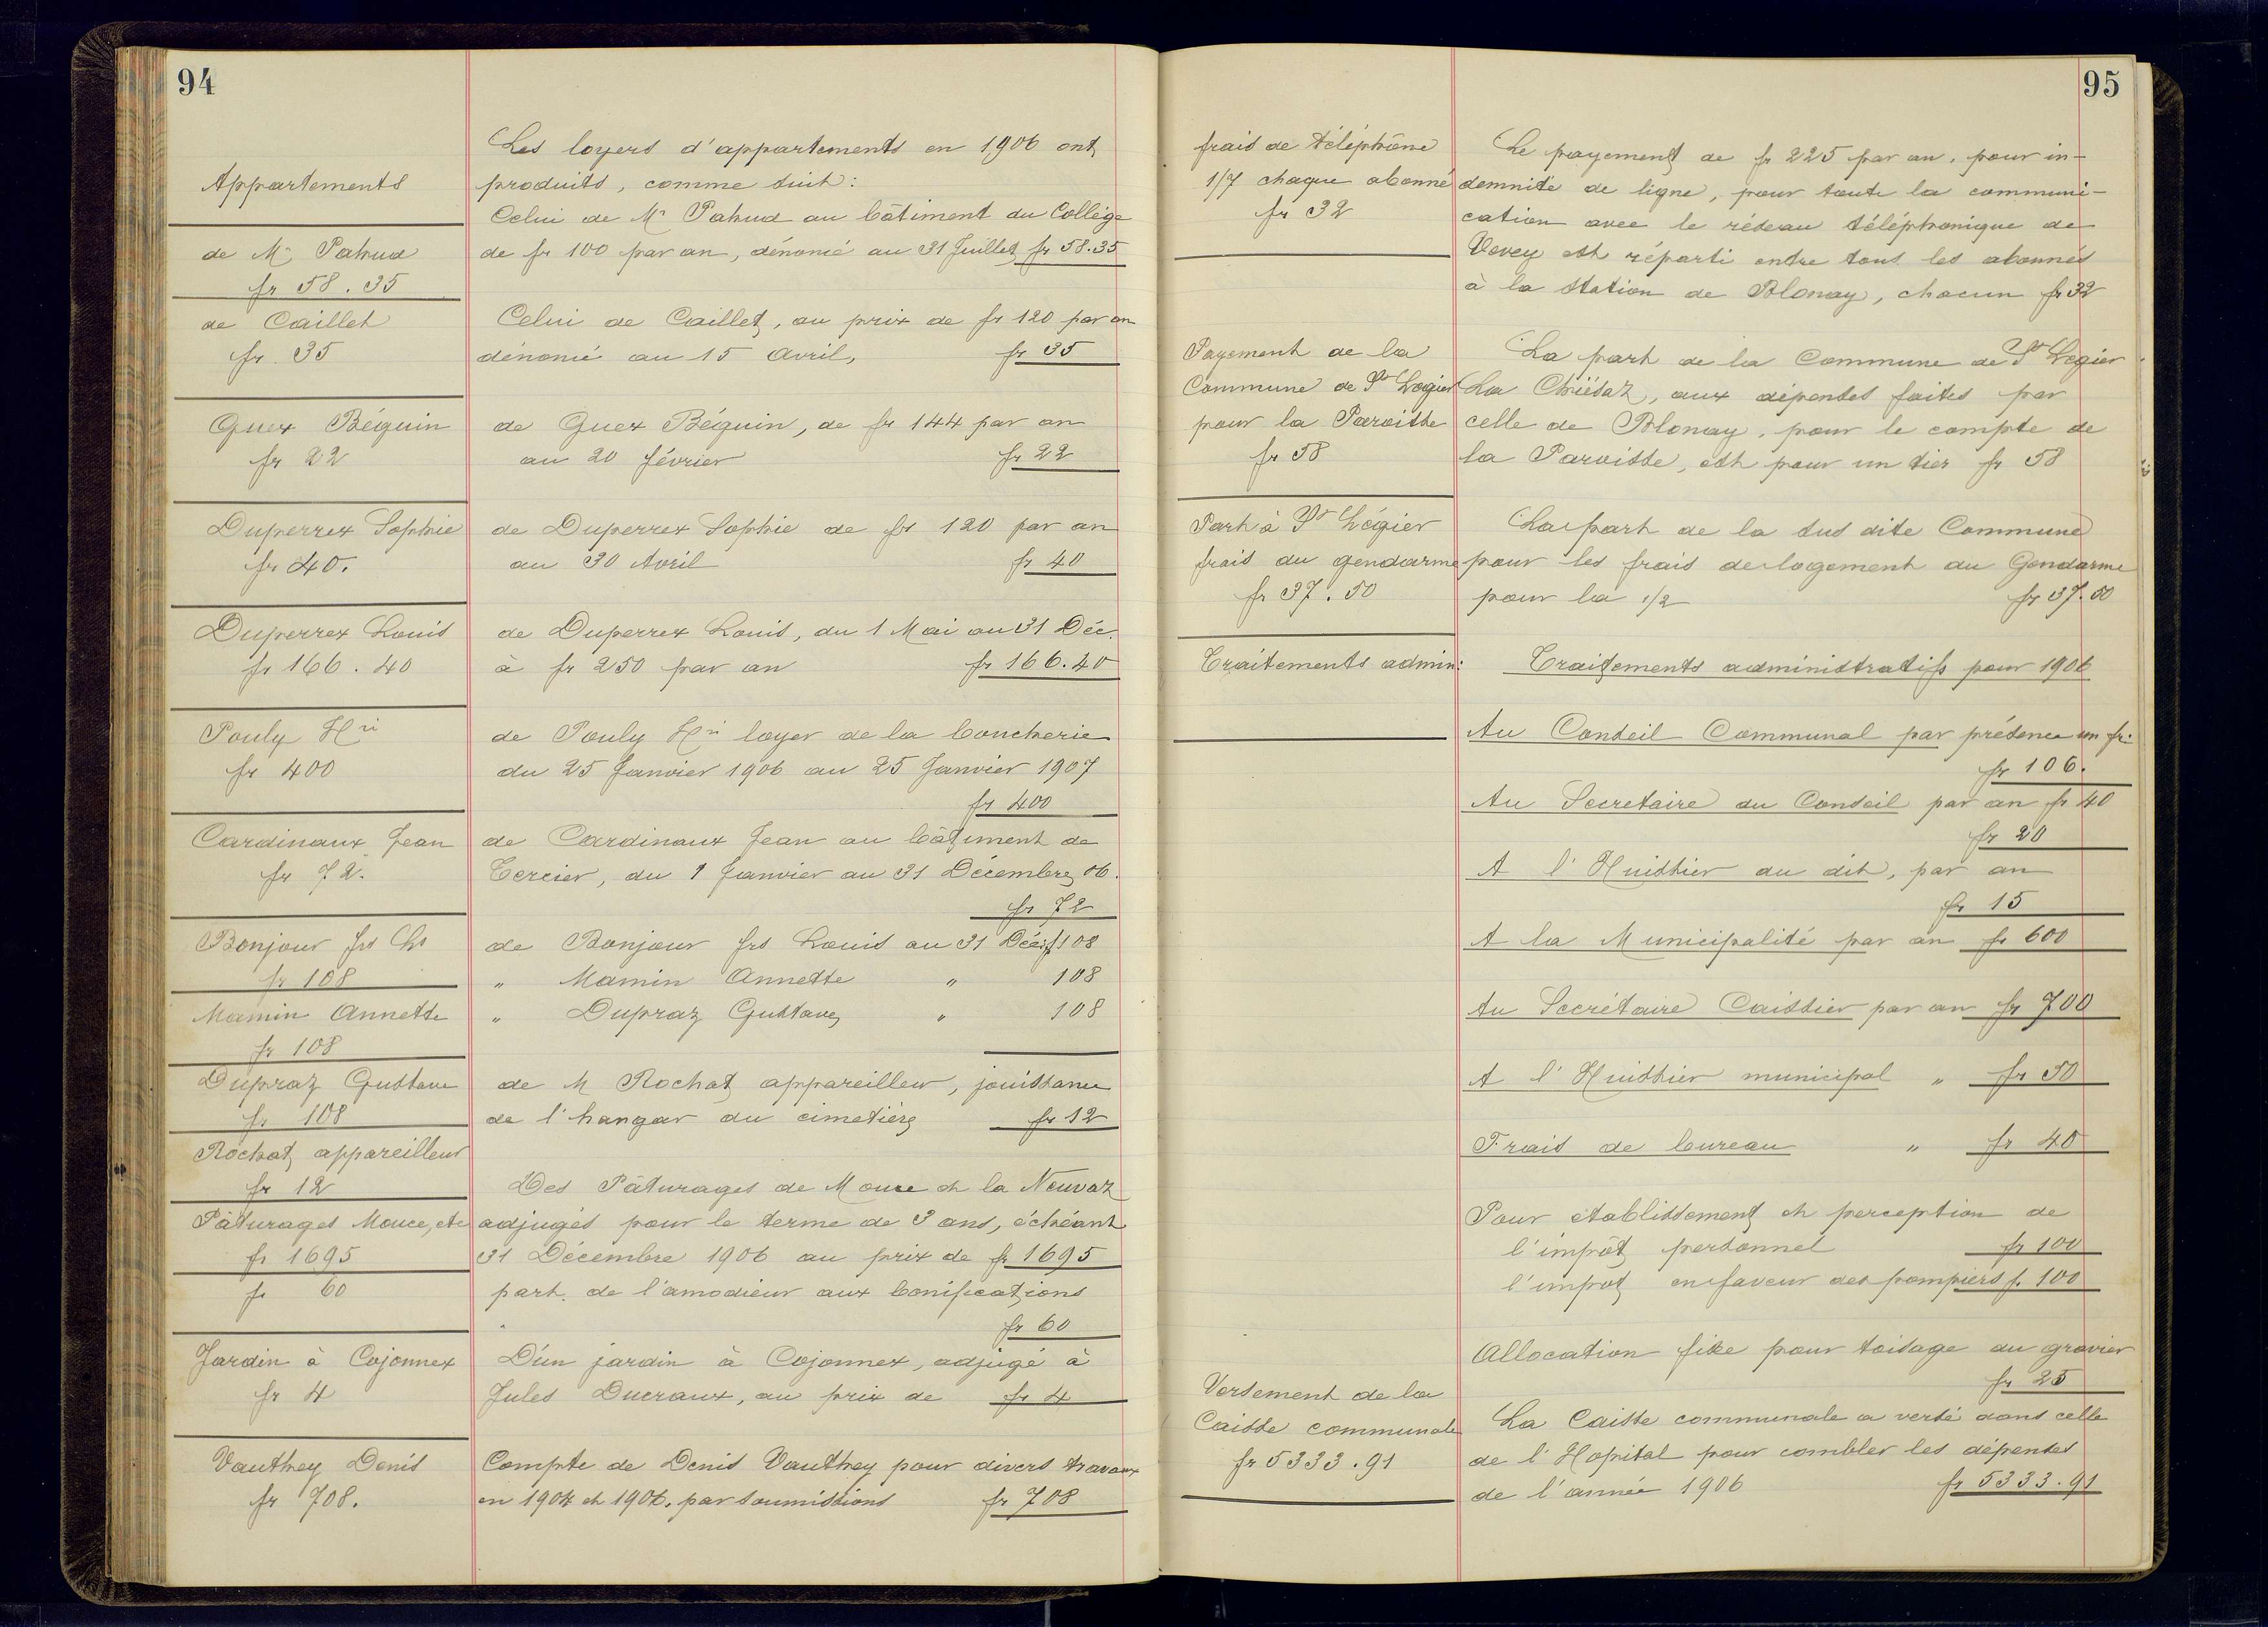 94
Appartements
de Mr Pahud
fr 58.35
de Caillet
fr. 35
Guex Béguin
fr 22
Duperrex Sophie
fr 40.
Duperrex Louis
fr 166.40
Pouly Hri
fr 400
Cardinaux Jean
fr 72.
Bonjour frs Ls
fr 108
Mamin Annette
fr 108
Dupraz Gustave
fr 108
Rochat appareilleur
fr 12
Pâturages Mouce, etc
fr 1695
fr 60
Jardin à Cojonnex
fr 4
Vauthey Denis
fr 708.
Les loyers d'appartements en 1906 ont
produits, comme suit:
Celui de Mr Pahud au bâtiment du Collège
de fr 100 par an, dénoncé au 31 Juillet fr 58.35
Celui de Caillet, au prix de fr 120 par an
dénoncé au 15 Avril, fr 35
de Guex Béguin, de fr 144 par an
au 20 février fr 22
de Duperrex Sophie de fr 120 par an
au 30 Avril fr 40
de Duperrex Louis, du 1 Mai au 31 Déc.
à fr 250 par an fr 166.40
de Pouly Hri loyer de la boucherie
du 25 Janvier 1906 au 25 Janvier 1907
fr 400
de Cardinaux Jean au bâtiment de
Tercier, du 1 Janvier au 31 Décembre 06.
fr 72
de Bonjour frs Louis au 31 Déc: f 108
" Mamin Annette " 108
" Dupraz Gustave " 108
de M Rochat appareilleur, jouissance
de l'hangar du cimetière fr 12
Des Pâturages de Mouce et la Neuvaz
adjugés pour le terme de 3 ans, échéant
31 Décembre 1906 au prix de fr 1695
part. de l'amodieur aux bonifications
" fr 60
D'un jardin à Cojonnex, adjugé à
Jules Ducraux, au prix de fr 4
Compte de Denis Vauthey pour divers travaux
en 1904 et 1906. par soumissions fr 708
95
frais de téléphone
1/7 chaque abonné
fr 32
Payement de la
Commune de St Legier
pour la Paroisse
fr 58
Part à St Légier
frais du gendarme
fr 37.50
Traitements admin:
Versement de la
Caisse communale
fr 5333.91
Le payement de fr 225 par an, pour in-
demnité de ligne, pour toute la communi-
cation avec le réseau téléphonique de
Vevey est réparti entre tous les abonnés
à la station de Blonay, chacun fr 32
La part de la Commune de St Legier
La Chiésaz, aux dépenses faites par
celle de Blonay, pour le compte de
la Paroisse, est pour un tier fr 58
La part de la sus dite Commune
pour les frais de logement du Gendarme
pour la 1/2 fr 37.50
Traitements administratifs pour 1906
Au Conseil Communal par présence un fr.
fr 106.
Au Secretaire du Conseil par an fr 40
fr 20
A l'Huissier du dit, par an
fr 15
A la Municipalité par an fr 600
Au Secrétaire Caissier par an fr 700
A l'Huissier municipal " fr 50
Frais de bureau " fr 40
Pour établissement et perception de
l'impôt personnel fr 100
l'impot en faveur des pompiers f. 100
Allocation fixe pour toisage du gravier
fr 25
La Caisse communale a versé dans celle
de l'Hopital pour combler les dépenses
de l'année 1906 fr 5333.91